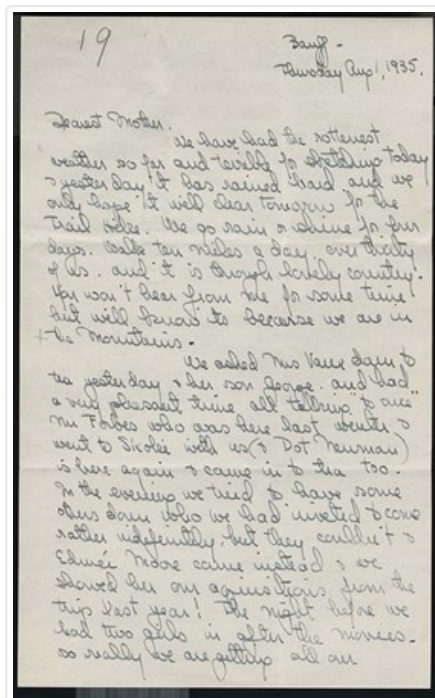 19
Banff -
Thursday Aug 1, 1935.
Dearest Mother.
We have had the rottenest
weather so far and terrible for sketching today
& yesterday it has rained hard and we
only hope it will clear tomorrow for the
Trail Hike. We go rain or shine for four
days. Walk ten miles a day over thirty
of us. and it is through lovely country.
You won't hear from me for some time
but will know its because we are in
the Mountains.
We asked Mrs Vaux down to
tea yesterday & her son George. and had
a very pleasant time all talking "to once"
Mr Forbes who was here last winter &
went to Skokie with us (& Dot Newman)
is here again & came in to tea too.
In the evening we tried to have some
others down who we had invited to come
rather indefinitely, but they couldn't &
Edmée Moore came instead & we
showed her our aquisitions from the
trip last year! The night before we
had two girls in after the movies.
so really we are getting all our